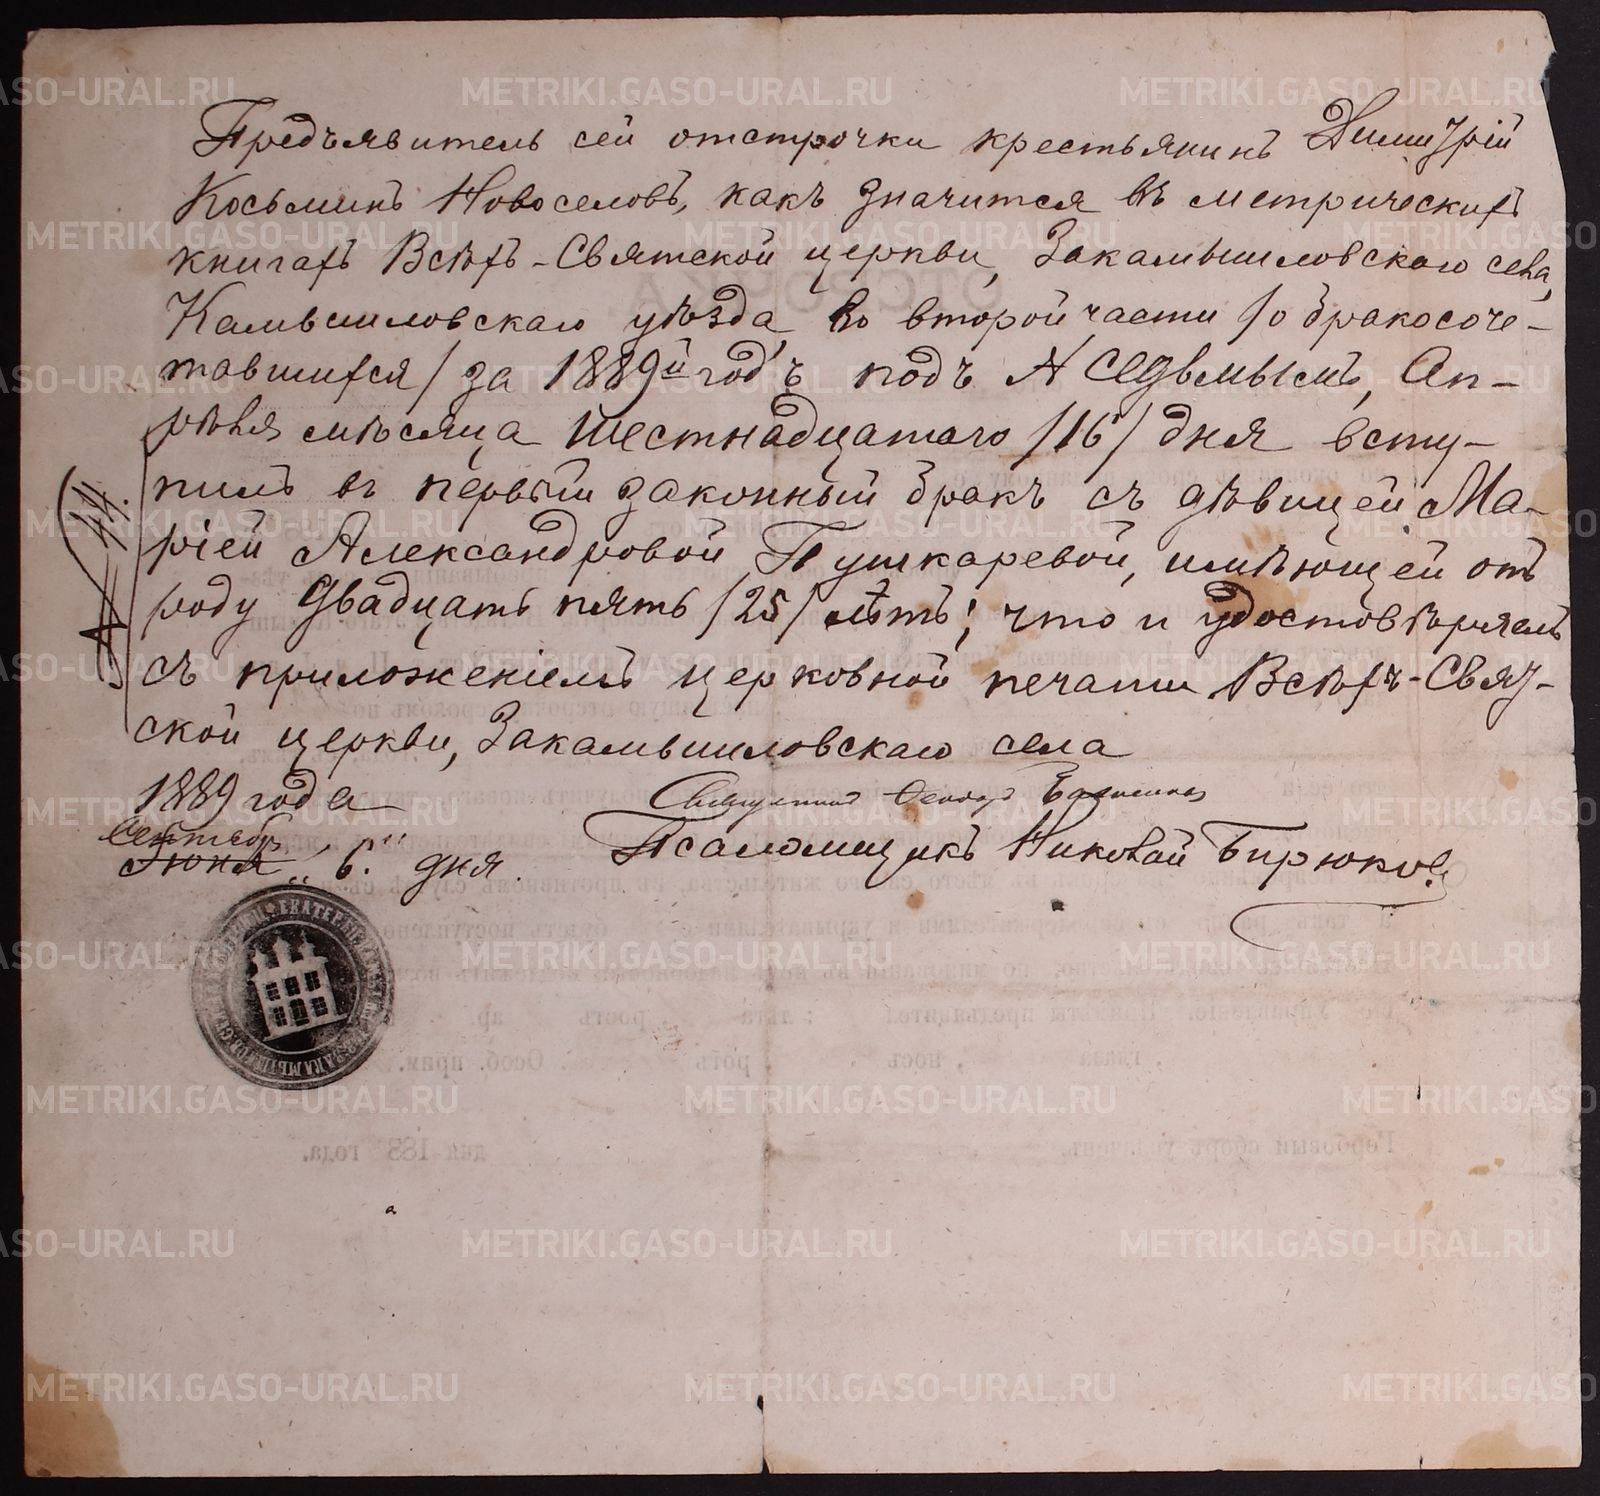 Предъявитель сей отстрочки крестьянинъ Димитрій
Косьминъ Новоселовъ, какъ значится въ метрическихъ
книгахъ Всѣхъ-Святской церкви, Закамышловскаго села,
Камышловскаго уѣзда, во второй части /о бракосоче-
тавшихся/ за 1889й годъ подъ № седьмымъ, Ап-
рѣля мѣсяца шестнадцатаго /16/ дня всту-
пилъ въ первый законный бракъ съ дѣвицей Ма-
ріей Александровой Пушкаревой, имѣющей отъ
роду двадцать пять /25/ лѣтъ; что и удостовѣряемъ
съ приложеніемъ церковной печати Всѣхъ-Свят-
ской церкви, Закамышловскаго села
1889 года
Сентября
Іюня „6.“ дня.
Священникъ
Псаломщикъ Николай Бирюковъ
№ 44.
METRIKI.GASO-URAL.RU